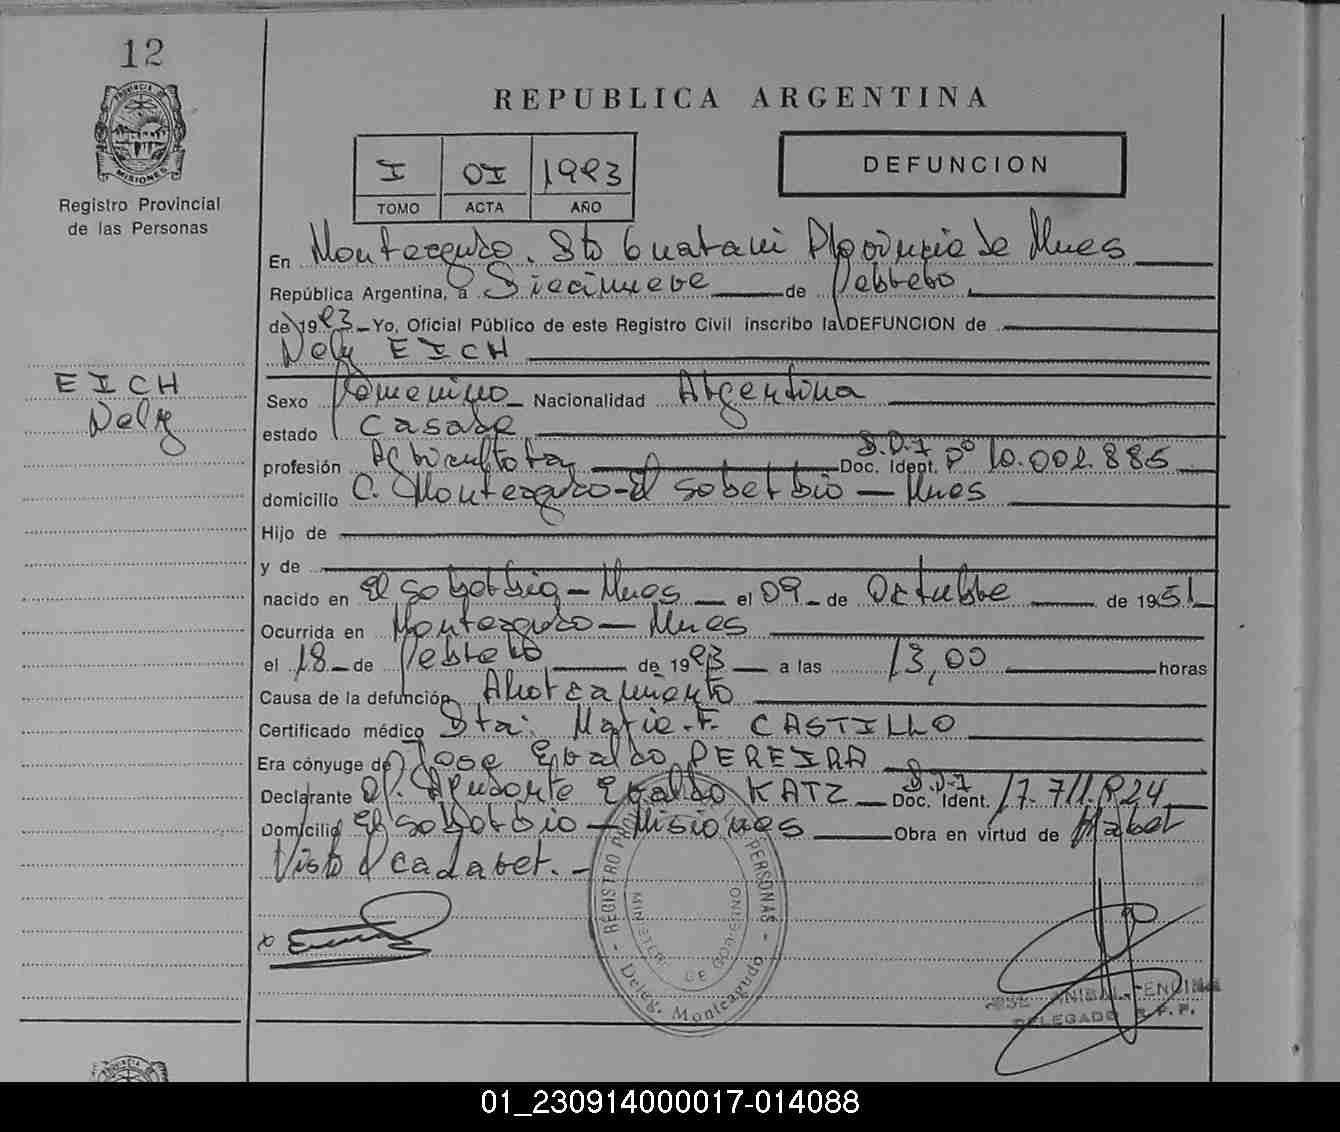 12
PROVINCIA DE
MISIONES
Registro Provincial
de las Personas
REPUBLICA ARGENTINA
I OI 1993
TOMO ACTA AÑO
DEFUNCION
En Monteagudo. Dto Guarani Provincia de Mnes
República Argentina, a Diecinueve de Febrero
de 1993 Yo, Oficial Público de este Registro Civil inscribo la DEFUNCION de
Nely EICH
EICH
Nely
Sexo Femenino Nacionalidad Argentina
estado Casada
profesión Agricultora Doc. Ident. D.N.I Nº 10.002.885
domicilio C. Monteagudo-El soberbio — Mnes
Hijo de
y de
nacido en El soberbio — Mnes el 09 de Octubre de 1951
Ocurrida en Monteagudo — Mnes
el 18 de Febrero de 1993 a las 13,00 horas
Causa de la defunción Ahorcamiento
Certificado médico Dra: Maria.F. CASTILLO
Era cónyuge de Jose Evaldo PEREIRA
Declarante Of. Ayudante Evaldo KATZ Doc. Ident. D.N.I 17.711.924
Domicilio El soberbio — Misiones Obra en virtud de Haber
Visto el cadaver. -
REGISTRO PERSONAS
DE GOBIERNO
Deleg. Monteagudo
ANIBAL ENCINA
DELEGADO R.P.P.
01_230914000017-014088